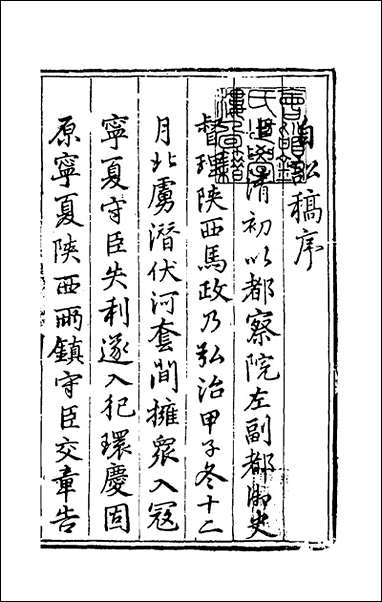 自訟稿序
清初以都察院左副都御史
督理陝西馬政乃弘治甲子冬十二
月北虜潛伏河套間擁衆入寇
寧夏守臣失利遂入犯環慶固
原寧夏陝西兩鎮守臣交章告